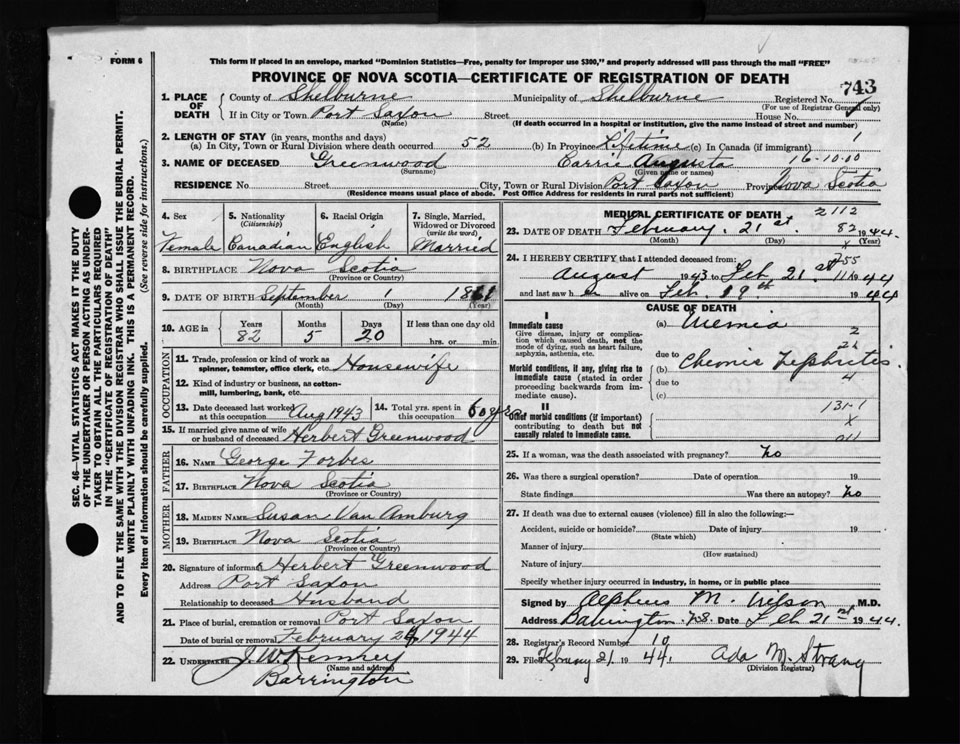 FORM 6
This form if placed in an envelope, marked "Dominion Statistics—Free, penalty for improper use $300," and properly addressed will pass through the mail "FREE"
PROVINCE OF NOVA SCOTIA—CERTIFICATE OF REGISTRATION OF DEATH
743
1. PLACE OF DEATH County of Shelburne Municipality of Shelburne Registered No.
(For use of Registrar General only)
If in City or Town Port Saxon Street House No.
(Name) (If death occurred in a hospital or institution, give the name instead of street and number)
2. LENGTH OF STAY (in years, months and days)
(a) In City, Town or Rural Division where death occurred 52 (b) In Province Lifetime (c) In Canada (if immigrant) 1
3. NAME OF DECEASED Greenwood Carrie Augusta 16-10-00
(Surname) (Given name or names)
RESIDENCE No. Street City, Town or Rural Division Port Saxon Province Nova Scotia
(Residence means usual place of abode. Post Office Address for residents in rural parts not sufficient)
4. Sex 5. Nationality (Citizenship) 6. Racial Origin 7. Single, Married, Widowed or Divorced (write the word)
Female Canadian English Married
8. BIRTHPLACE Nova Scotia
(Province or Country)
9. DATE OF BIRTH September 1 1861
(Month) (Day) (Year)
10. AGE in Years Months Days If less than one day old
82 5 20 hrs. or min.
OCCUPATION
11. Trade, profession or kind of work as spinner, teamster, office clerk, etc. Housewife
12. Kind of industry or business, as cotton-mill, lumbering, bank, etc.
13. Date deceased last worked at this occupation Aug 1943 14. Total yrs. spent in this occupation 60 yrs
15. If married give name of wife or husband of deceased Herbert Greenwood
FATHER
16. NAME George Forbes
17. BIRTHPLACE Nova Scotia
(Province or Country)
MOTHER
18. MAIDEN NAME Susan Van Amburg
19. BIRTHPLACE Nova Scotia
(Province or Country)
20. Signature of informant Herbert Greenwood
Address Port Saxon
Relationship to deceased Husband
21. Place of burial, cremation or removal Port Saxon
Date of burial or removal February 24 1944
22. UNDERTAKER J. W. Kenney
(Name and address)
Barrington
MEDICAL CERTIFICATE OF DEATH 2112
23. DATE OF DEATH February. 21st. 82 1944.
(Month) (Day) x (Year)
24. I HEREBY CERTIFY that I attended deceased from:
August 1943 to Feb 21st 1944
and last saw h er alive on Feb. 19th 1944
CAUSE OF DEATH
I
Immediate cause
Give disease, injury or complication which caused death, not the mode of dying, such as heart failure, asphyxia, asthenia, etc.
(a) Uremia 2
due to
Morbid conditions, if any, giving rise to immediate cause (stated in order proceeding backwards from immediate cause).
(b) Chronic Nephritis
due to 4
(c)
II
Other morbid conditions (if important) contributing to death but not causally related to immediate cause.
131-1
x
25. If a woman, was the death associated with pregnancy? No
26. Was there a surgical operation? Date of operation 19
State findings Was there an autopsy? No
27. If death was due to external causes (violence) fill in also the following:—
Accident, suicide or homicide? Date of injury 19
(State which)
Manner of injury
(How sustained)
Nature of injury
Specify whether injury occurred in industry, in home, or in public place
Signed by Alpheus M. Wilson M.D.
Address Barrington N.S. Date Feb 21st 1944.
28. Registrar's Record Number 10
29. Filed February 21. 1944. Ada M. Strang
(Division Registrar)
SEC. 46—VITAL STATISTICS ACT MAKES IT THE DUTY
OF THE UNDERTAKER OR PERSON ACTING AS UNDER-
TAKER TO OBTAIN ALL THE PARTICULARS REQUIRED
IN THE "CERTIFICATE OF REGISTRATION OF DEATH"
AND TO FILE THE SAME WITH THE DIVISION REGISTRAR WHO SHALL ISSUE THE BURIAL PERMIT.
WRITE PLAINLY WITH UNFADING INK. THIS IS A PERMANENT RECORD.
Every item of information should be carefully supplied. (See reverse side for instructions.)